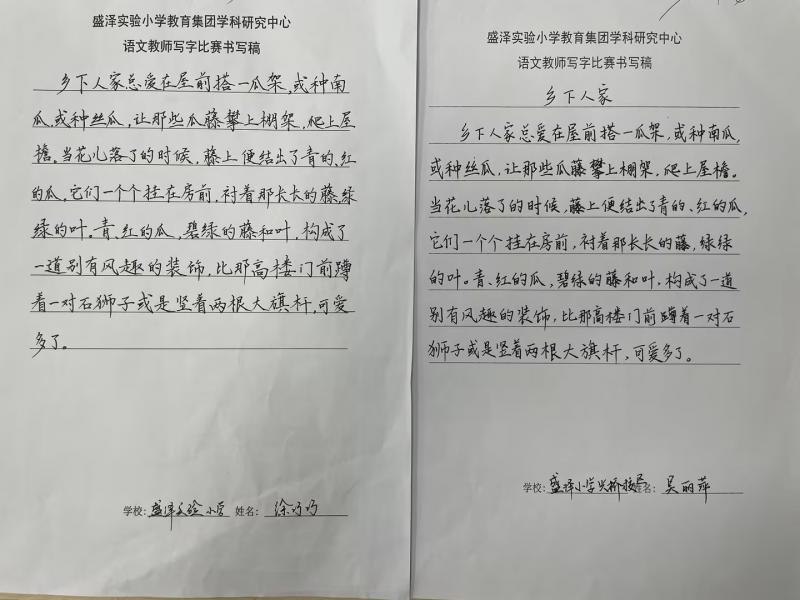 盛泽实验小学教育集团学科研究中心
语文教师写字比赛书写稿
乡下人家总爱在屋前搭一瓜架,或种南
瓜,或种丝瓜,让那些瓜藤攀上棚架,爬上屋
檐。当花儿落了的时候,藤上便结出了青的、红
的瓜,它们一个个挂在房前,衬着那长长的藤,绿
绿的叶。青、红的瓜,碧绿的藤和叶,构成了
一道别有风趣的装饰,比那高楼门前蹲
着一对石狮子或是竖着两根大旗杆,可爱
多了。
学校:盛泽实验小学 姓名:徐巧巧
盛泽实验小学教育集团学科研究中心
语文教师写字比赛书写稿
乡下人家
乡下人家总爱在屋前搭一瓜架,或种南瓜,
或种丝瓜,让那些瓜藤攀上棚架,爬上屋檐。
当花儿落了的时候,藤上便结出了青的、红的瓜,
它们一个个挂在房前,衬着那长长的藤,绿绿
的叶。青、红的瓜,碧绿的藤和叶,构成了一道
别有风趣的装饰,比那高楼门前蹲着一对石
狮子或是竖着两根大旗杆,可爱多了。
学校:盛泽小学兴桥校区 姓名:吴丽萍